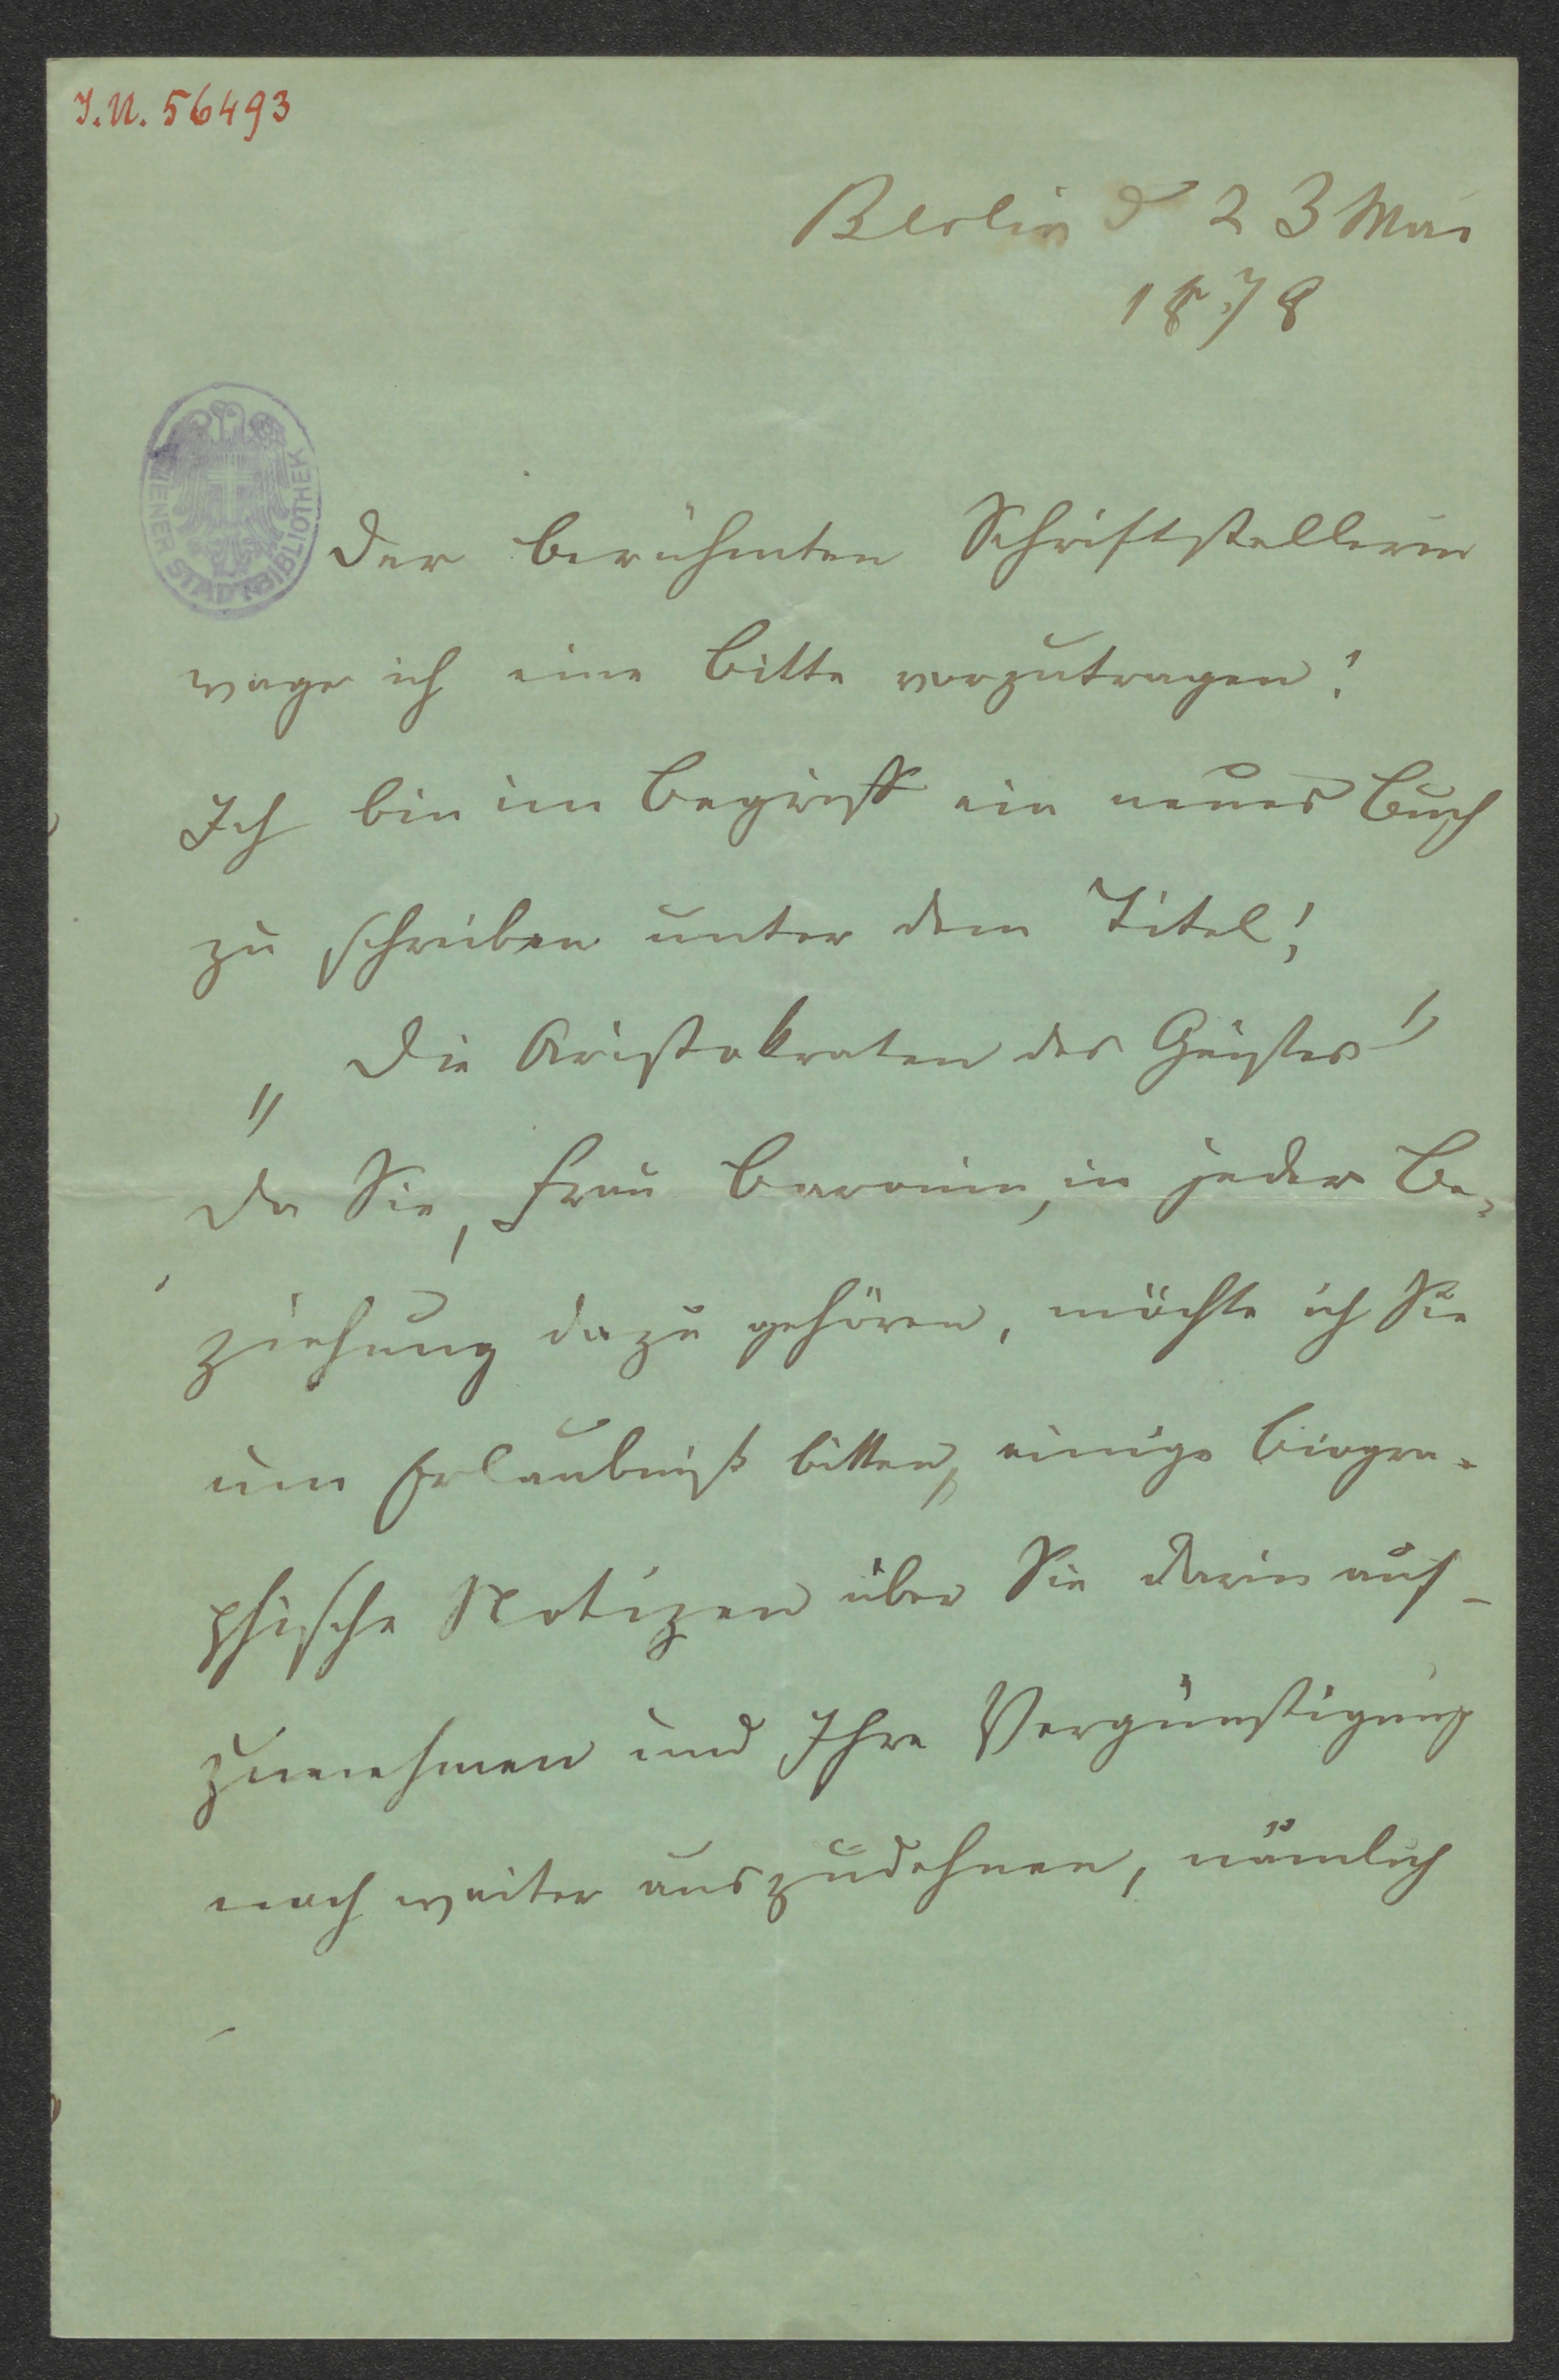 J.N. 56493
Berlin d 23 Mai
1878
WIENER STADTBIBLIOTHEK
Der berühmten Schriftstellerin
wage ich eine Bitte vorzutragen!
Ich bin im Begriff ein neues Buch
zu schreiben unter dem Titel!
„Die Aristokraten des Geistes"
Da Sie, Frau Baronin, in jeder Be-
ziehung dazu gehören, möchte ich Sie
um Erlaubniß bitten, einige biogra-
phische Notizen über Sie darin auf-
zunehmen und Ihre Vergünstigung
noch weiter auszudehnen, nämlich